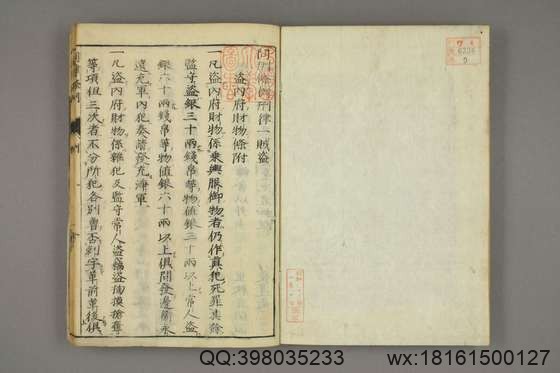 問刑條例刑律一賊盗
盗内府財物條附
一凡盗内府財物係乘輿服御物者仍作真犯死罪其餘
監守盗銀三十兩錢帛等物值銀三十兩以上常人盗
銀六十兩錢帛等物值銀六十兩以上俱問發邊衛永
遠充軍内犯奏請發充淨軍
一凡盗内府財物係雜犯及監守常人盗竊盗掏摸搶奪
等項但三次者不分所犯各別曾否刺字革前革後俱
QQ:398035233
wx:18161500127